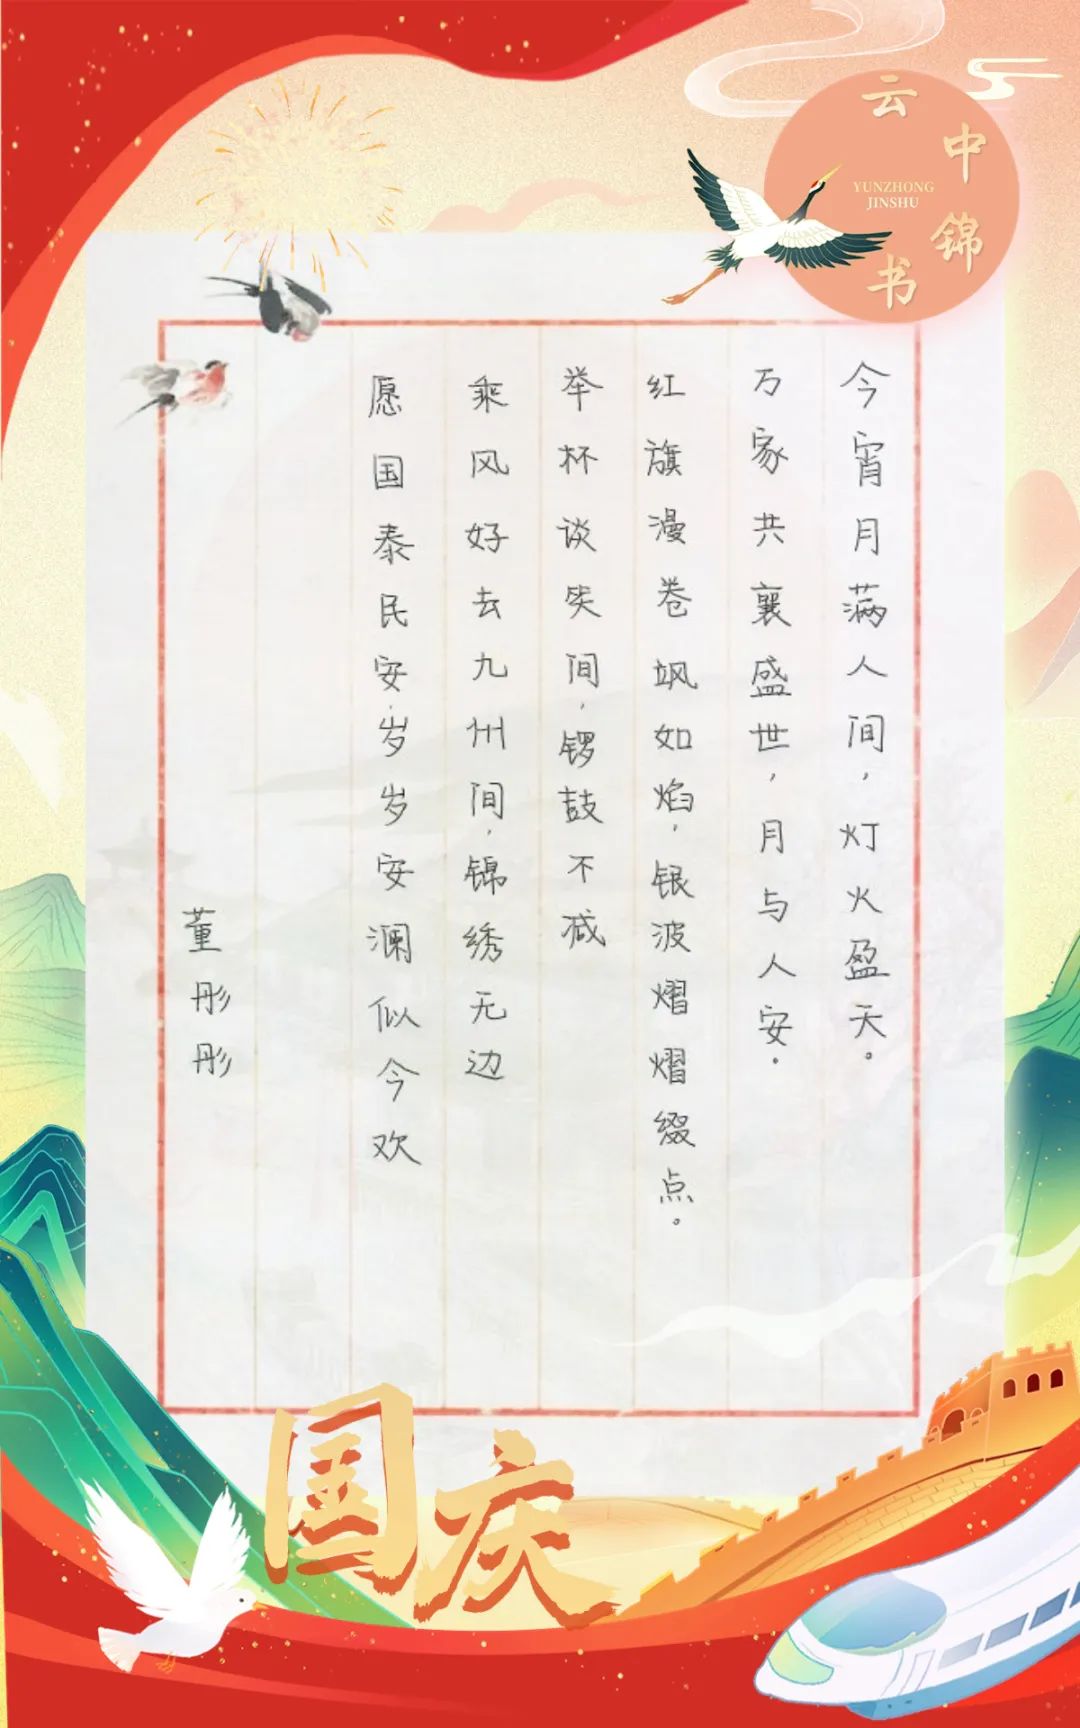 云中锦书
YUNZHONG
JINSHU
今宵月满人间，灯火盈天。
万家共襄盛世，月与人安.
红旗漫卷飒如焰，银波熠熠缀点。
举杯谈笑间，锣鼓不减
乘风好去九州间，锦绣无边
愿国泰民安，岁岁安澜似今欢
董彤彤
国庆